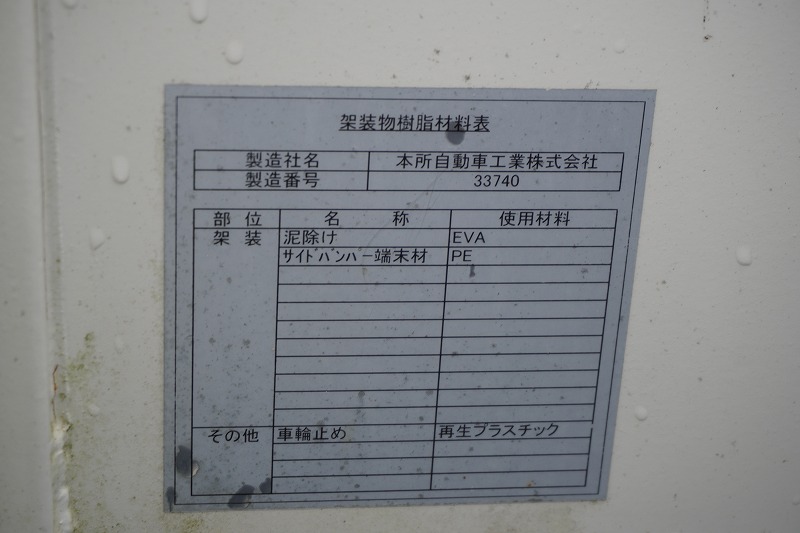 架装物樹脂材料表
製造社名 本所自動車工業株式会社
製造番号 33740
部位 名称 使用材料
架装 泥除け EVA
ｻｲﾄﾞﾊﾞﾝﾊﾟｰ端末材 PE
その他 車輪止め 再生プラスチック